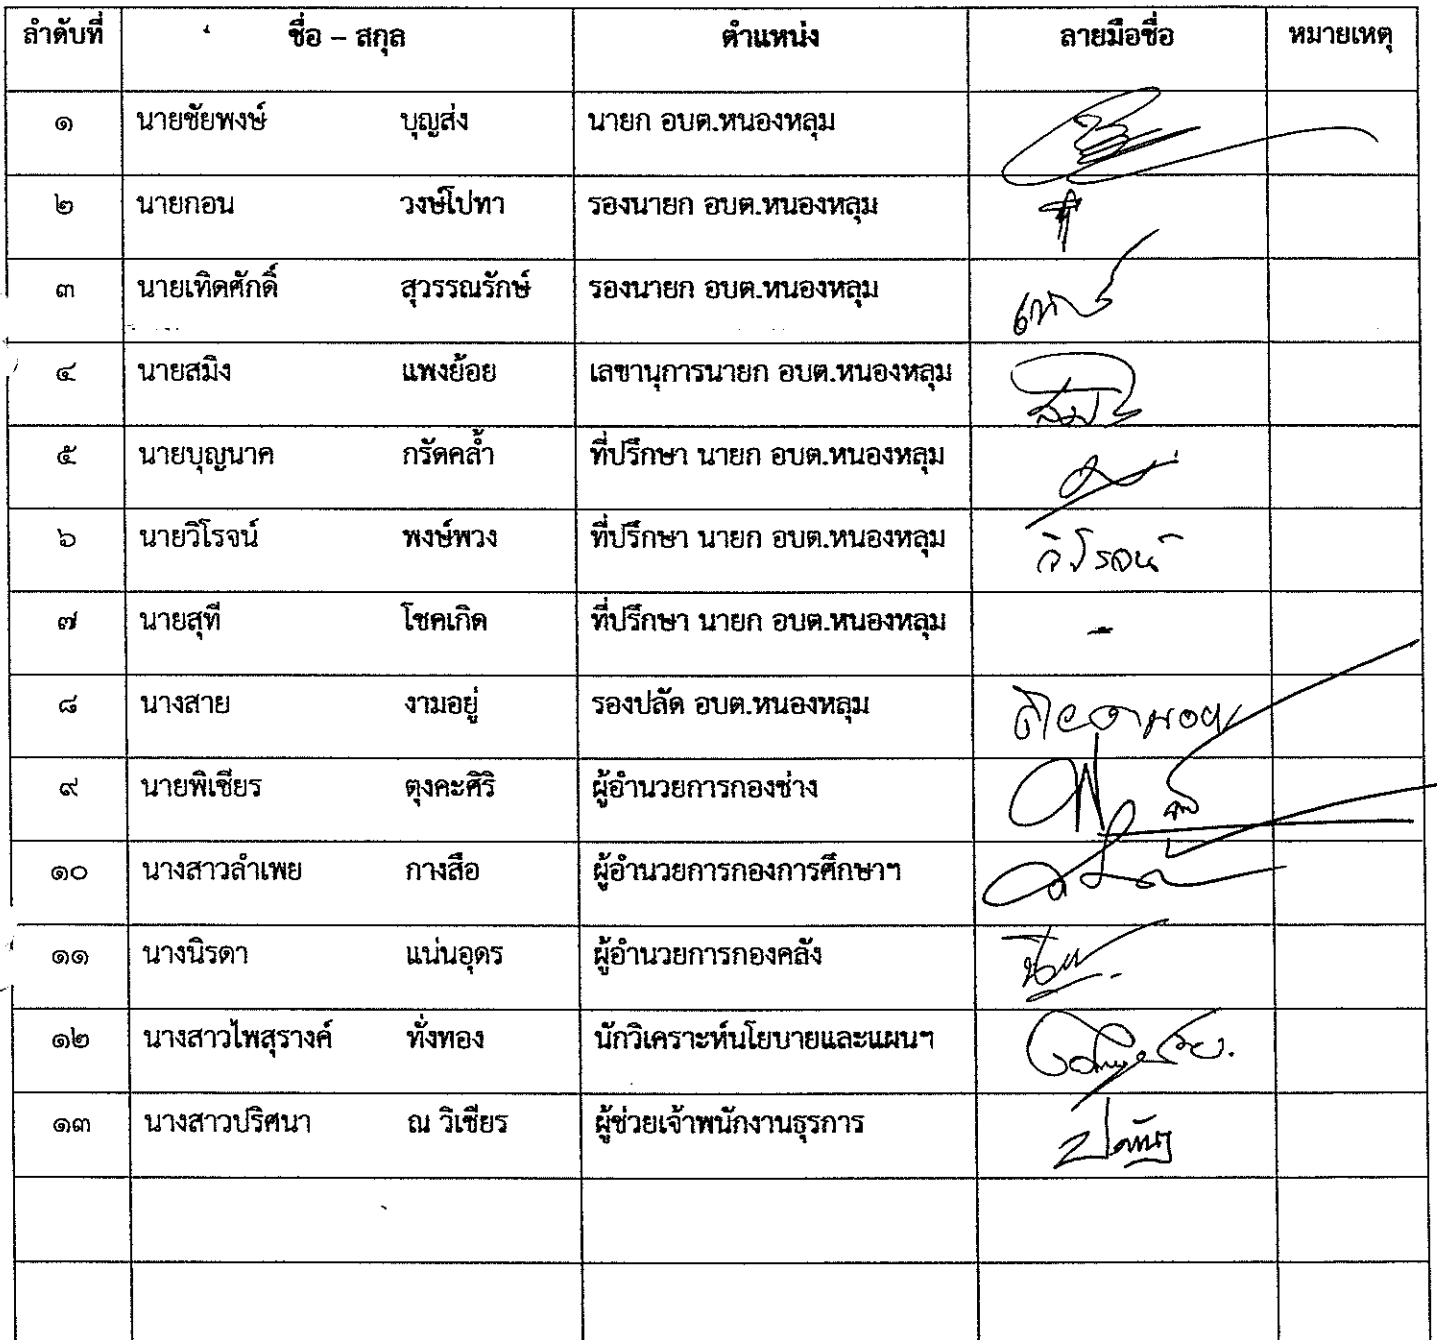 ลำดับที่ ชื่อ – สกุล ตำแหน่ง ลายมือชื่อ หมายเหตุ
๑ นายชัยพงษ์ บุญส่ง นายก อบต.หนองหลุม
๒ นายกอน วงษ์โปทา รองนายก อบต.หนองหลุม
๓ นายเทิดศักดิ์ สุวรรณรักษ์ รองนายก อบต.หนองหลุม
๔ นายสมิง แพงย้อย เลขานุการนายก อบต.หนองหลุม
๕ นายบุญนาค กรัดคล้ำ ที่ปรึกษา นายก อบต.หนองหลุม
๖ นายวิโรจน์ พงษ์พวง ที่ปรึกษา นายก อบต.หนองหลุม วิโรจน์
๗ นายสุที โชคเกิด ที่ปรึกษา นายก อบต.หนองหลุม -
๘ นางสาย งามอยู่ รองปลัด อบต.หนองหลุม
๙ นายพิเชียร ตุงคะศิริ ผู้อำนวยการกองช่าง
๑๐ นางสาวลำเพย กางสือ ผู้อำนวยการกองการศึกษาฯ
๑๑ นางนิรดา แน่นอุดร ผู้อำนวยการกองคลัง
๑๒ นางสาวไพสุรางค์ ทั่งทอง นักวิเคราะห์นโยบายและแผนฯ
๑๓ นางสาวปริศนา ณ วิเชียร ผู้ช่วยเจ้าพนักงานธุรการ